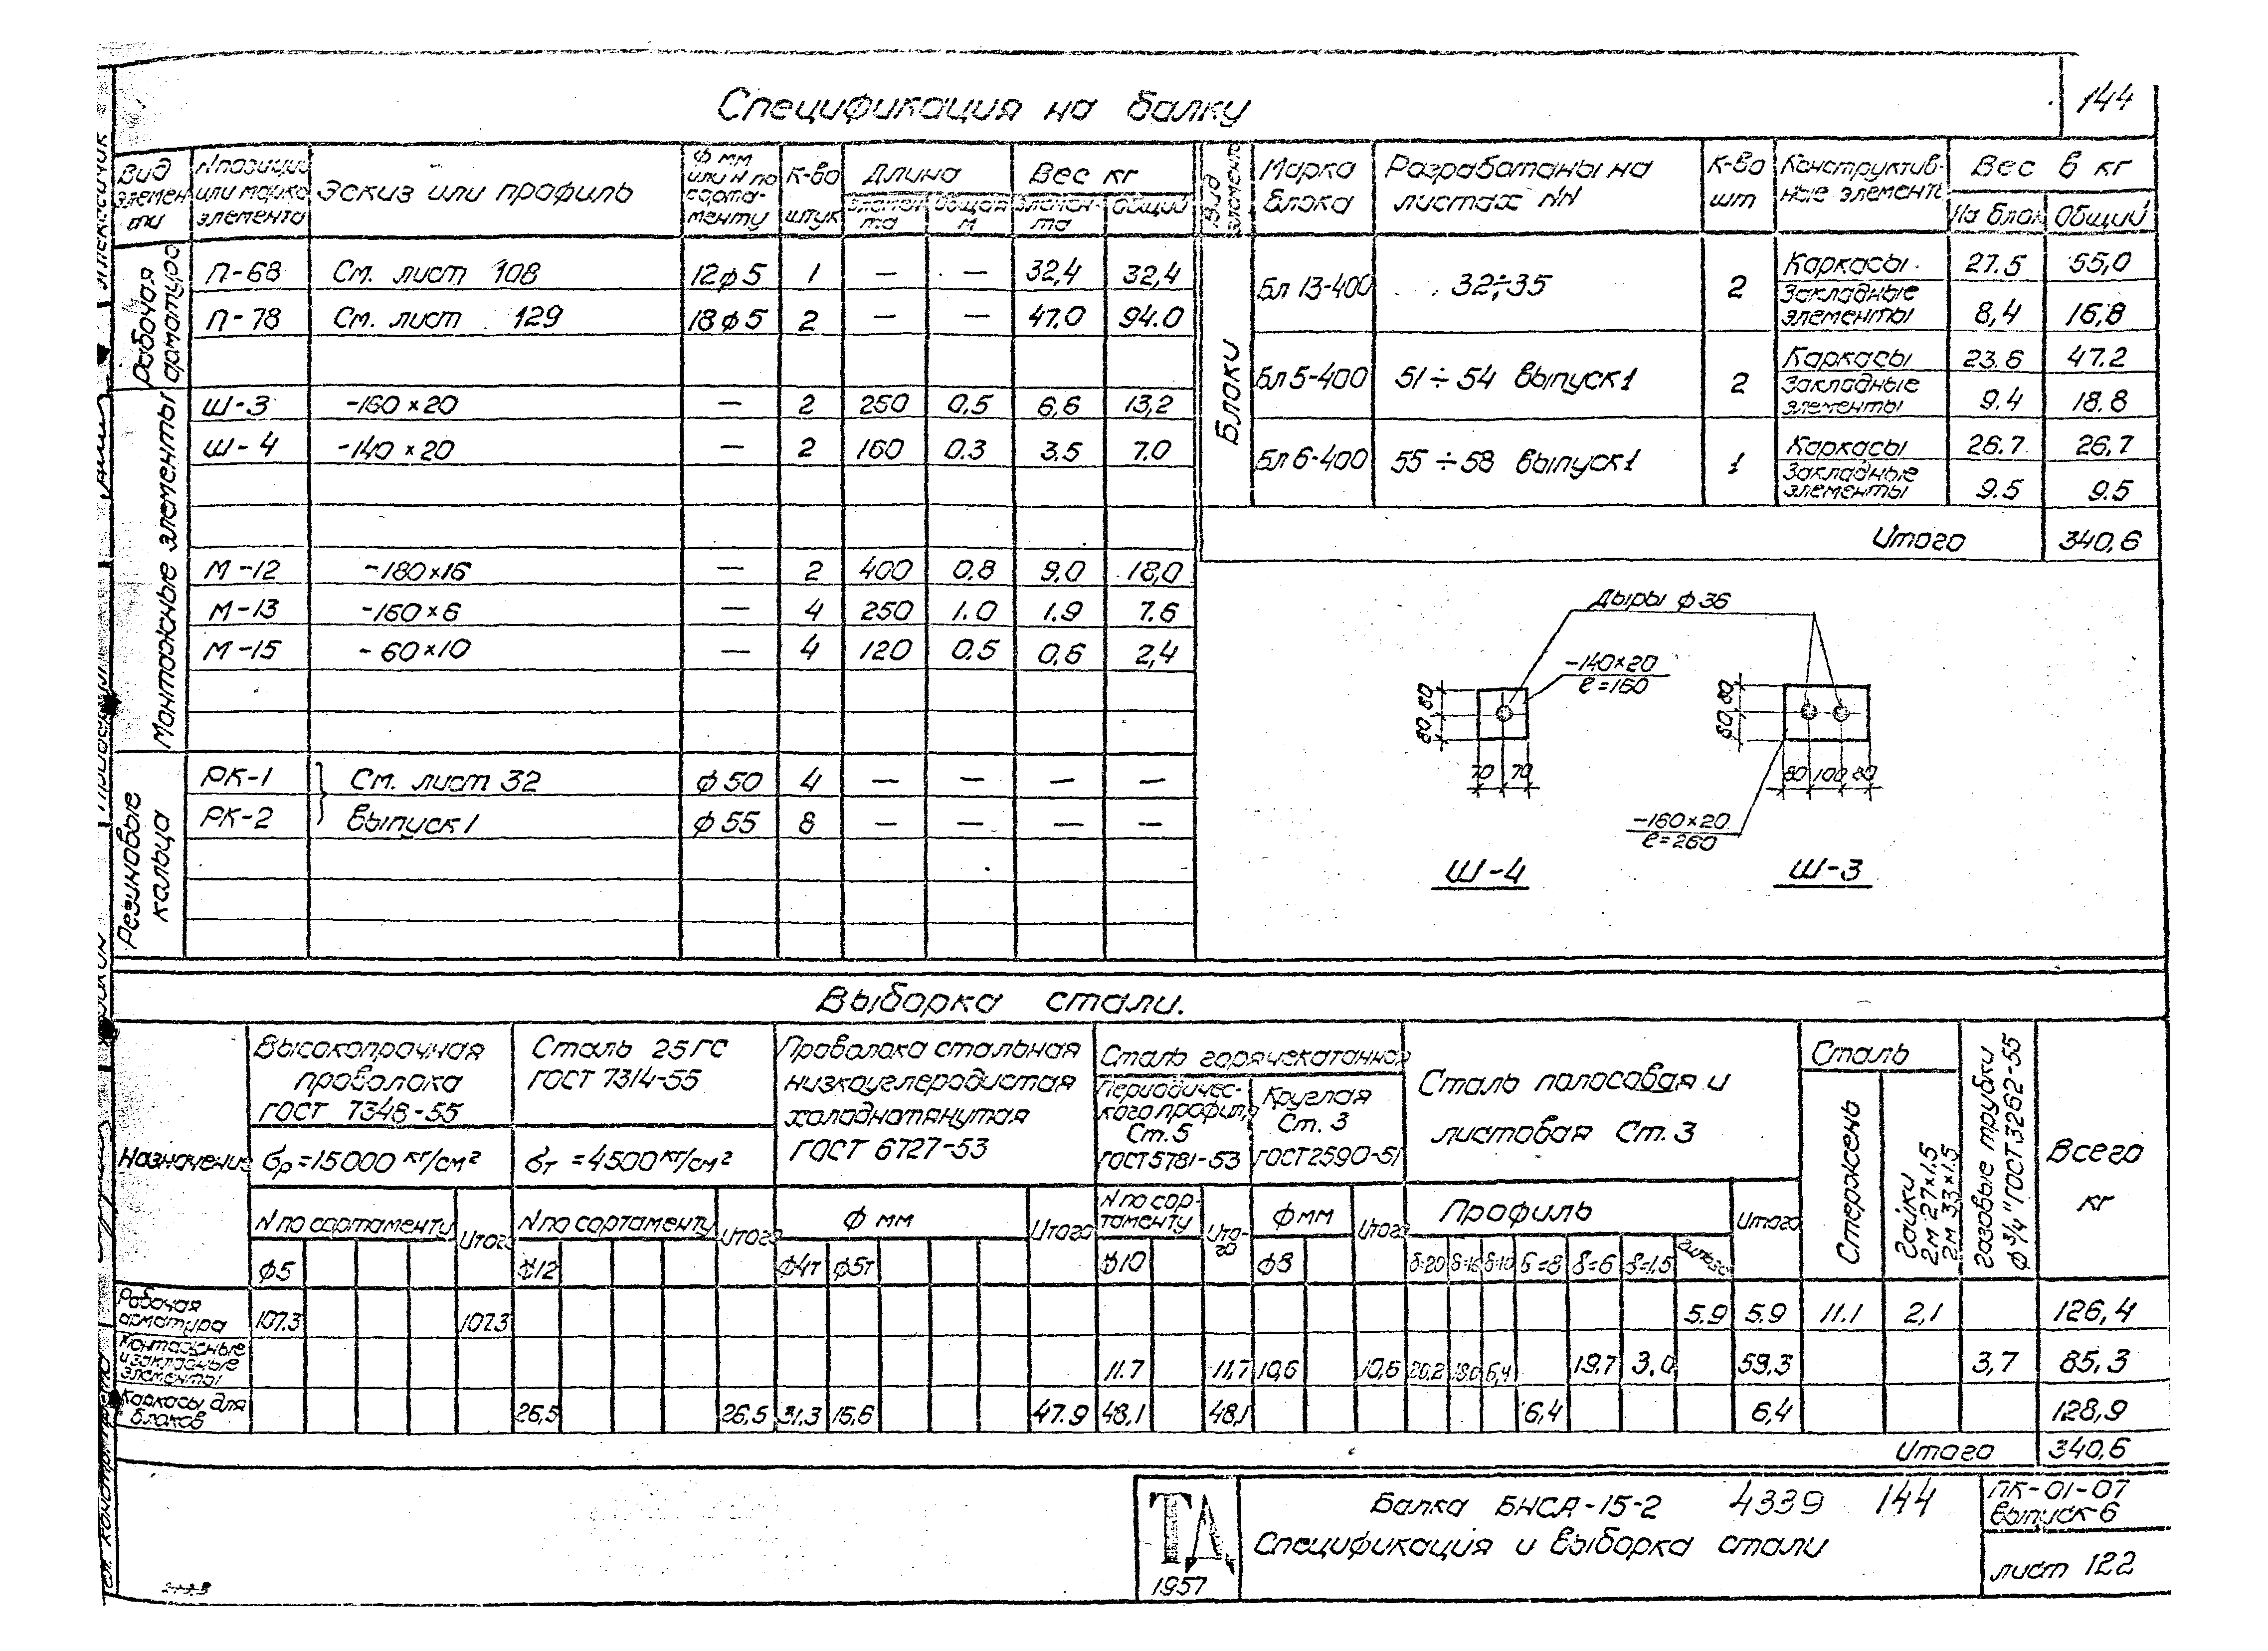 144
Спецификация на балку
Вид элемен ти | N позиции или марка элемента | Эскиз или профиль | Ф мм или N по сорта- менту | К-во штук | Длина | Вес кг
элемен та | Общая м | элемен- та | Общий
Рабочая арматура
П-68 См. лист 108 12ф5 1 — — 32,4 32,4
П-78 См. лист 129 18ф5 2 — — 47.0 94.0
Монтажные элементы
Ш-3 -160×20 — 2 250 0,5 6,6 13,2
Ш-4 -140×20 — 2 160 0.3 3.5 7.0
М-12 -180×16 — 2 400 0.8 9.0 18,0
М-13 -160×6 — 4 250 1.0 1.9 7.6
М-15 -60×10 — 4 120 0.5 0,6 2,4
Резиновые кольца
РК-1 См. лист 32 ф50 4 — — — —
РК-2 Выпуск 1 ф55 8 — — — —
Вид элемента | Марка блока | Разработаны на листах NN | К-во шт | Конструктив- ные элемент | Вес в кг
На блок | Общий
Блоки
Бл 13-400 32÷35 2 Каркасы 27.5 55,0
Закладные элементы 8,4 16,8
Бл 5-400 51÷54 выпуск 1 2 Каркасы 23.6 47.2
Закладные элементы 9.4 18.8
Бл 6-400 55÷58 выпуск 1 1 Каркасы 26.7 26,7
Закладные элементы 9.5 9.5
Итого 340,6
Дыры ф36
-140×20
ℓ=160
80 80
70 70
80 80
80 100 80
-160×20
ℓ=260
Ш-4 Ш-3
Выборка стали.
Назначение
Высокопрочная проволока ГОСТ 7348-55
σр=15000 кг/см²
Сталь 25ГС ГОСТ 7314-55
σт=4500 кг/см²
Проволока стальная низкоуглеродистая холоднотянутая ГОСТ 6727-53
Сталь горячекатанная
Периодичес- кого профиля Ст.5 ГОСТ 5781-53
Круглая Ст. 3 ГОСТ 2590-51
Сталь полосовая и листовая Ст. 3
Сталь
Стержень
Гайки 2м 27×1,5 2м 33×1.5
Газовые трубки ф 3/4" ГОСТ 3262-55
Всего кг
N по сортаменту Итого N по сортаменту Итого Ф мм Итого N по сор- таменту Ито- го Фмм Итого Профиль Итого
ф5 ф12 ф4т ф5т ф10 ф8 δ=20 δ=16 δ=10 δ=8 δ=6 δ=1,5
Рабочая арматура 107.3 107.3 5.9 5.9 11.1 2,1 126,4
Монтажные и закладные элементы 11.7 11,7 10,6 10,6 20,2 18.0 6,4 19,7 3,0 3,7 85,3
Каркасы для блоков 26,5 26,5 31.3 16,6 47.9 48,1 48,1 6,4 6,4 128,9
Итого 340,6
ТД
1957
Балка БНСА-15-2 4339 144
Спецификация и выборка стали
ПК-01-07
Выпуск 6
лист 122